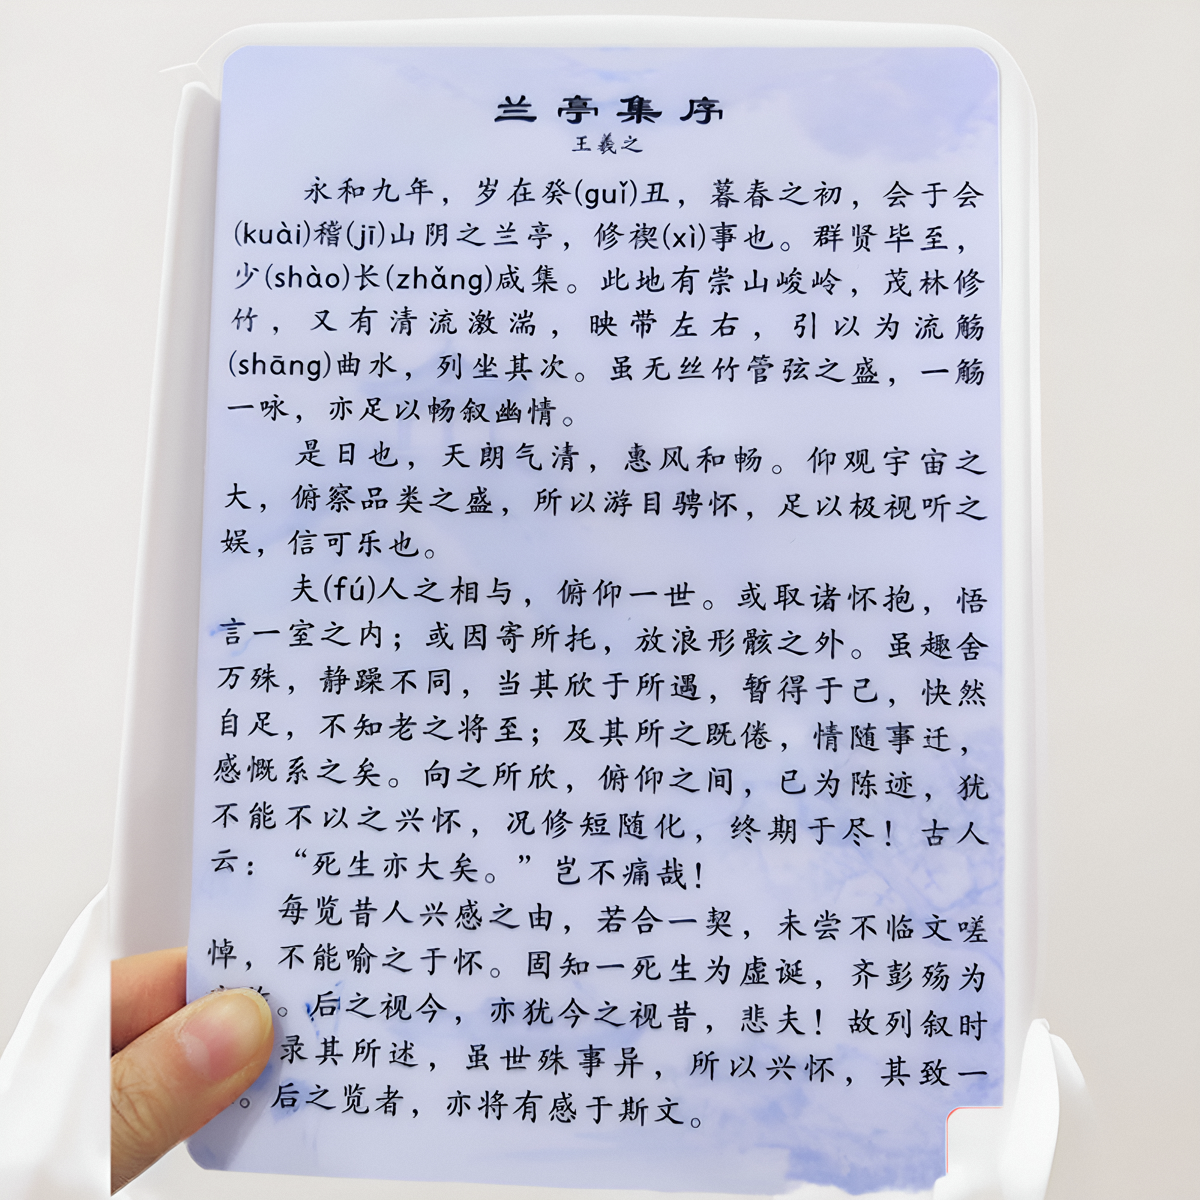 兰亭集序
王羲之
永和九年，岁在癸(guǐ)丑，暮春之初，会于会
(kuài)稽(jī)山阴之兰亭，修禊(xì)事也。群贤毕至，
少(shào)长(zhǎng)咸集。此地有崇山峻岭，茂林修
竹，又有清流激湍，映带左右，引以为流觞
(shāng)曲水，列坐其次。虽无丝竹管弦之盛，一觞
一咏，亦足以畅叙幽情。
是日也，天朗气清，惠风和畅。仰观宇宙之
大，俯察品类之盛，所以游目骋怀，足以极视听之
娱，信可乐也。
夫(fú)人之相与，俯仰一世。或取诸怀抱，悟
言一室之内；或因寄所托，放浪形骸之外。虽趣舍
万殊，静躁不同，当其欣于所遇，暂得于己，快然
自足，不知老之将至；及其所之既倦，情随事迁，
感慨系之矣。向之所欣，俯仰之间，已为陈迹，犹
不能不以之兴怀，况修短随化，终期于尽！古人
云：“死生亦大矣。”岂不痛哉！
每览昔人兴感之由，若合一契，未尝不临文嗟
悼，不能喻之于怀。固知一死生为虚诞，齐彭殇为
。后之视今，亦犹今之视昔，悲夫！故列叙时
录其所述，虽世殊事异，所以兴怀，其致一
。后之览者，亦将有感于斯文。